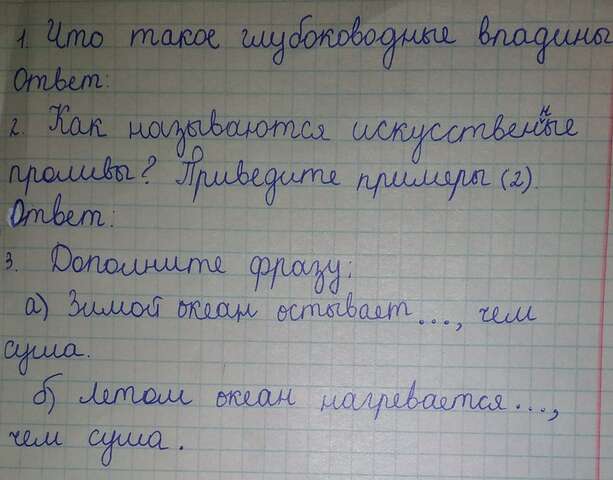 1. Что такое глубоководные впадины
Ответ:
2. Как называются искусственные
проливы? Приведите примеры (2).
Ответ:
3. Дополните фразу:
а) Зимой океан остывает..., чем
суша.
б) Летом океан нагревается...,
чем суша.